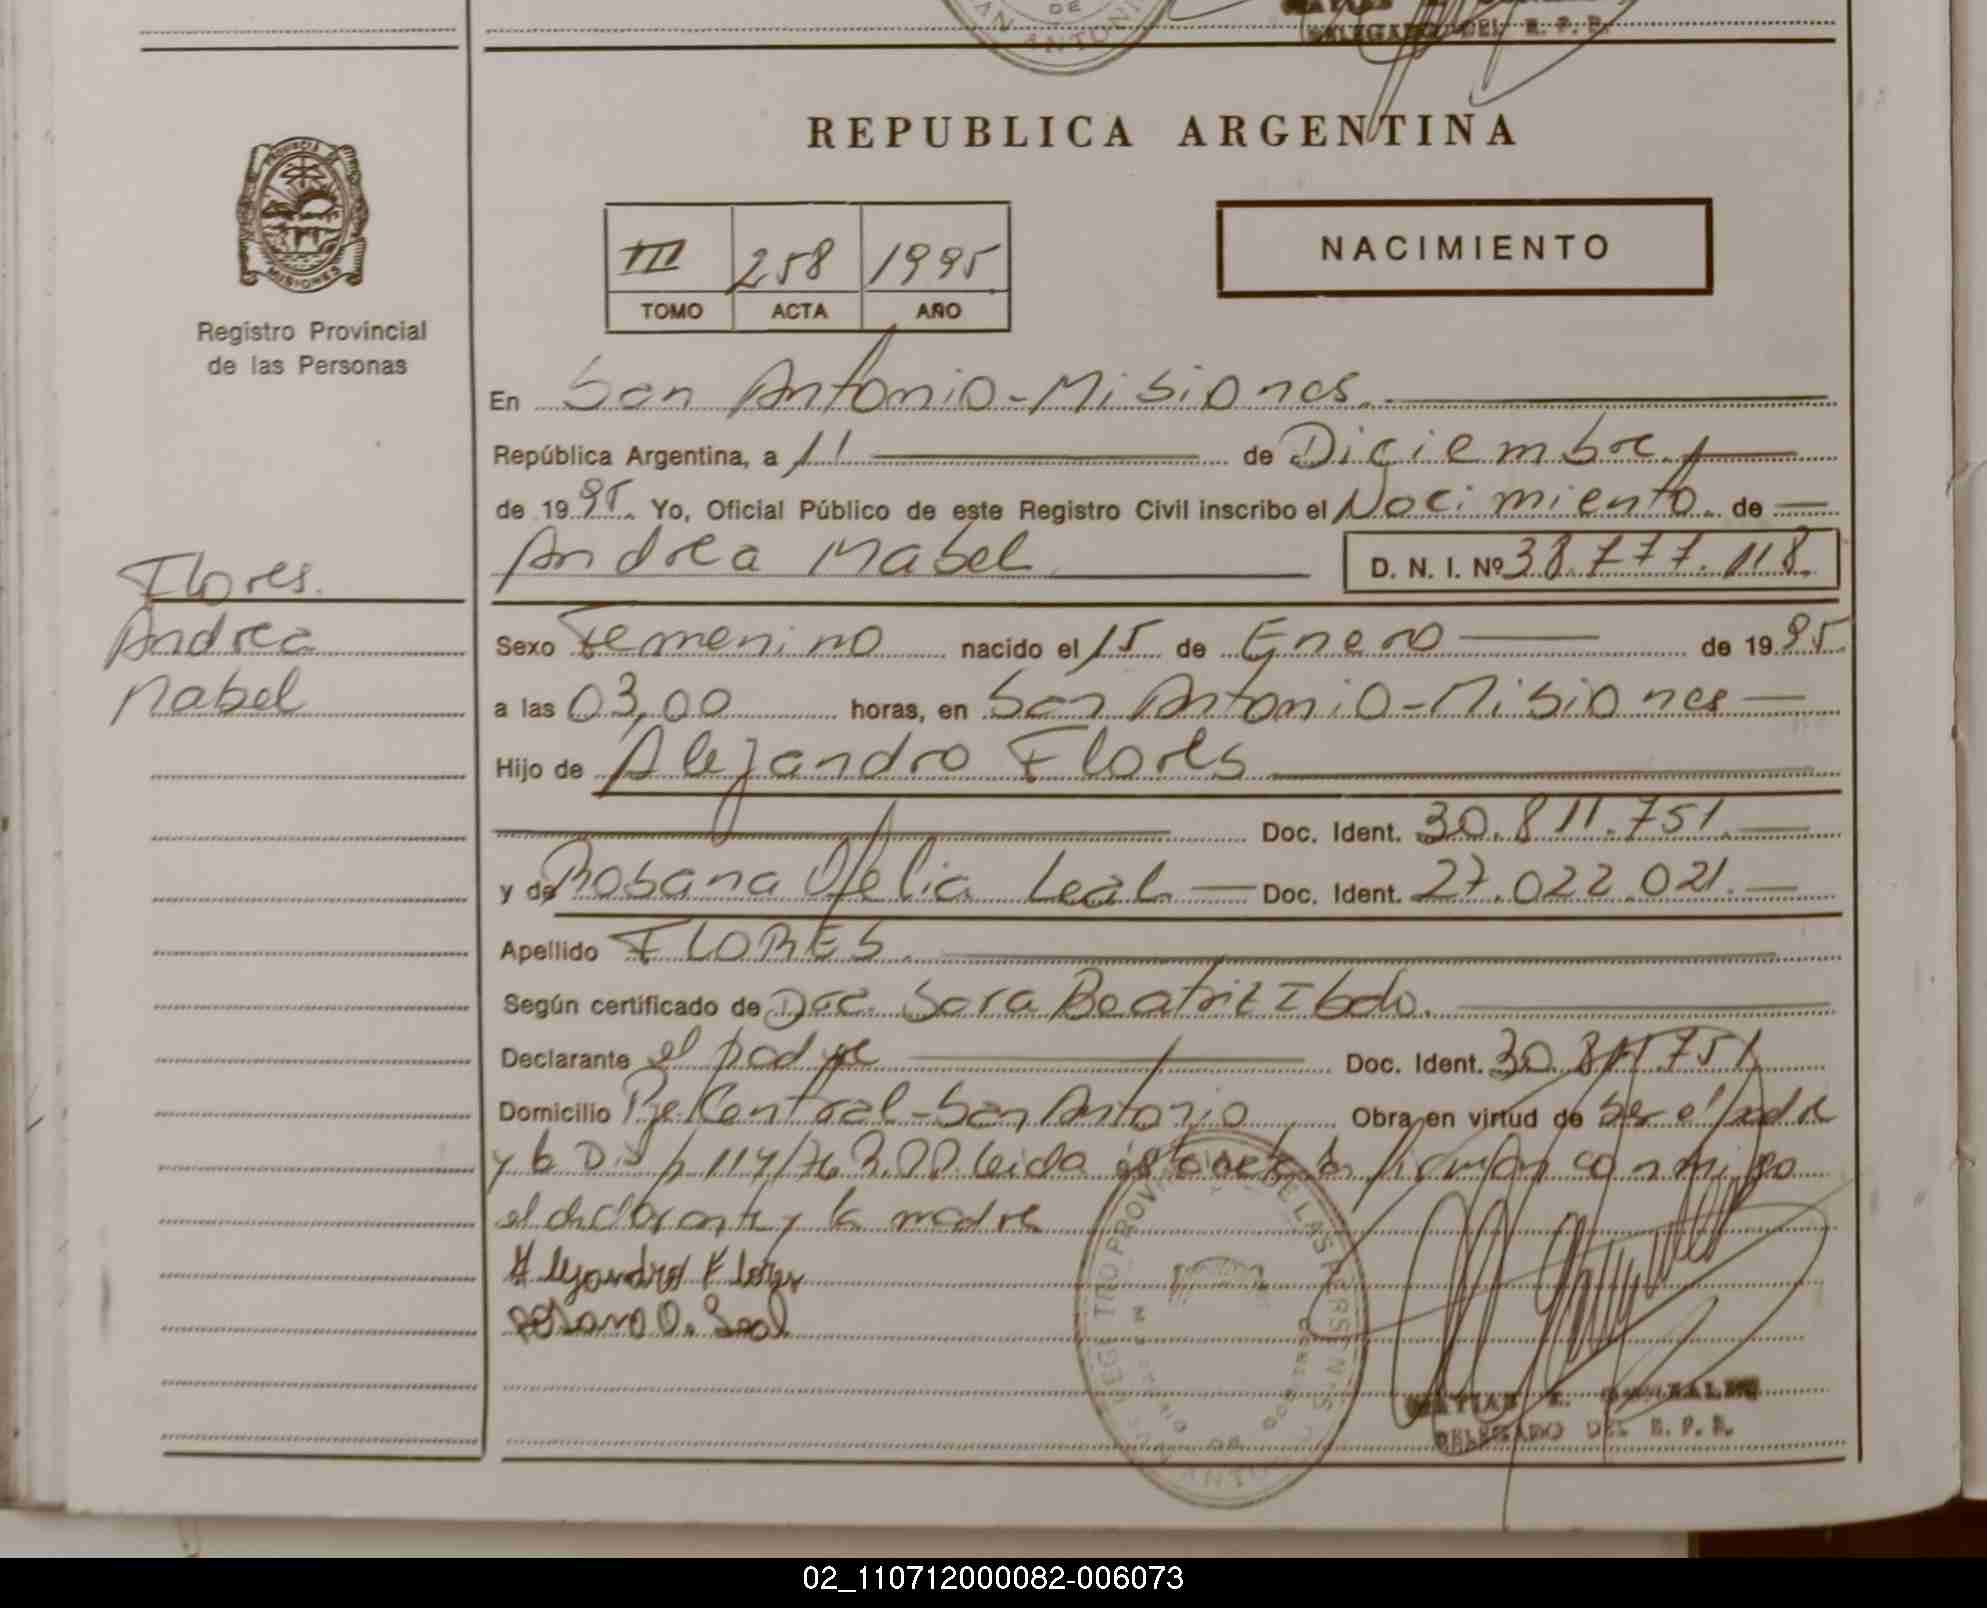 DE
SAN ANTONIO
DELEGADO DEL R. P. P.
PROVINCIA
MISIONES
Registro Provincial
de las Personas
REPUBLICA ARGENTINA
III 258 1995
TOMO ACTA AÑO
NACIMIENTO
En San Antonio-Misiones.
República Argentina, a 11 de Diciembre
de 1995. Yo, Oficial Público de este Registro Civil inscribo el Nacimiento de
Andrea Mabel D. N. I. Nº 38.777.118.
Flores.
Andrea
Mabel
Sexo Femenino nacido el 15 de Enero de 1995.
a las 03,00 horas, en San Antonio-Misiones
Hijo de Alejandro Flores
Doc. Ident. 30.811.751.
y de Rosana Ofelia Leal Doc. Ident. 27.022.021.
Apellido FLORES.
Según certificado de Doc. Sara Beatriz
Declarante el padre Doc. Ident. 30.811.751
Domicilio Pje. Central-San Antonio Obra en virtud de ser el padre
y la 114/76 leida esta acta la firman conmigo
el declarante y la madre
Alejandro Flores
Rosana O. Leal
MATIAS
DELEGADO DEL R. P. P.
02_110712000082-006073